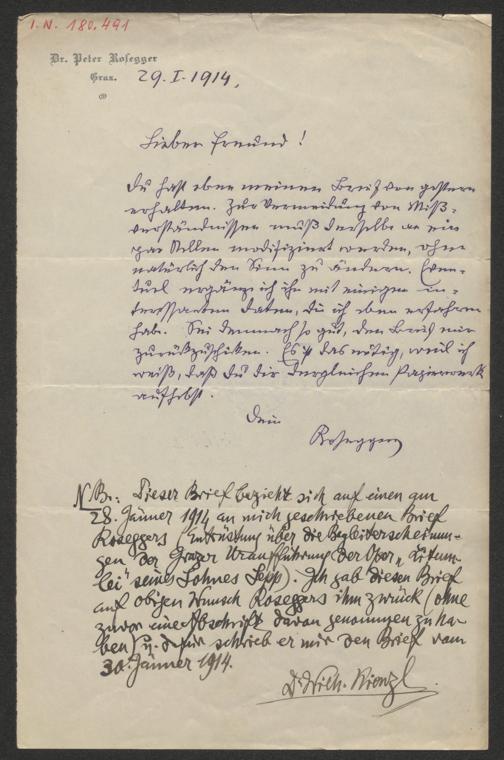 I.N. 180.491
Dr. Peter Rosegger
Graz.
29.I.1914.
Lieber Freund!
Du hast eben meinen Brief von gestern
erhalten. Zur Vermeidung von Miß-
verständnissen muß derselbe an ein
paar Stellen modifiziert werden, ohne
natürlich den Sinn zu ändern. Even-
tuel ergänze ich ihn mit einigen in-
teressanten Daten, die ich eben erfahren
hab. Sei demnach so gut, den Brief mir
zurückzuschiken. Es ist das nötig, weil ich
weiß, daß Du dir dergleichen Papierwerk
aufhebst.
Dein
Rosegger
NB.: Dieser Brief bezieht sich auf einen am
28. Jänner 1914 an mich geschriebenen Brief
Roseggers (Entrüstung über die Begleiterscheinun-
gen der Grazer Uraufführung der Oper „
lei" seines Sohnes Sepp). Ich gab diesen Brief
auf obigen Wunsch Roseggers ihm zurück (ohne
zuvor eine Abschrift davon genommen zu ha-
ben) u. dafür schrieb er mir den Brief vom
30. Jänner 1914.
Dr. Wilh. Kienzl.